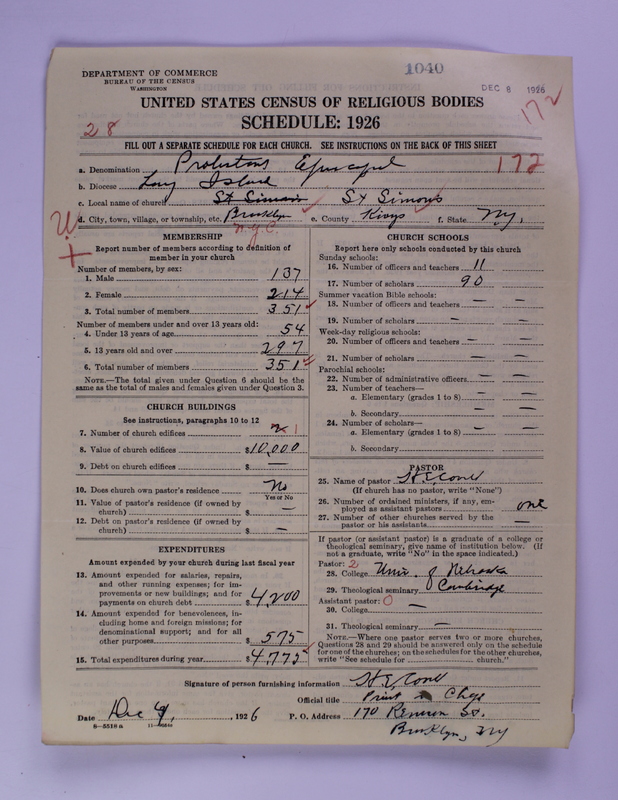 1040
DEPARTMENT OF COMMERCE
BUREAU OF THE CENSUS
WASHINGTON
DEC 8 1926
172
UNITED STATES CENSUS OF RELIGIOUS BODIES
SCHEDULE: 1926
28
FILL OUT A SEPARATE SCHEDULE FOR EACH CHURCH. SEE INSTRUCTIONS ON THE BACK OF THIS SHEET
a. Denomination Protestant Episcopal 172
b. Diocese Long Island
c. Local name of church St Simons
d. City, town, village, or township, etc. Brooklyn e. County Kings f. State N.Y.
N.Y.C.
MEMBERSHIP
Report number of members according to definition of
member in your church
Number of members, by sex:
1. Male 137
2. Female 214
3. Total number of members 351
Number of members under and over 13 years old:
4. Under 13 years of age 54
5. 13 years old and over 297
6. Total number of members 351
NOTE.—The total given under Question 6 should be the
same as the total of males and females given under Question 3.
CHURCH BUILDINGS
See instructions, paragraphs 10 to 12
7. Number of church edifices 1
8. Value of church edifices $10,000
9. Debt on church edifices $ —
10. Does church own pastor's residence No
Yes or No
11. Value of pastor's residence (if owned by
church) $ —
12. Debt on pastor's residence (if owned by
church) $ —
EXPENDITURES
Amount expended by your church during last fiscal year
13. Amount expended for salaries, repairs,
and other running expenses; for im-
provements or new buildings; and for
payments on church debt $4,200
14. Amount expended for benevolences, in-
cluding home and foreign missions; for
denominational support; and for all
other purposes $ 575
15. Total expenditures during year $4,775
CHURCH SCHOOLS
Report here only schools conducted by this church
Sunday schools:
16. Number of officers and teachers 11
17. Number of scholars 90
Summer vacation Bible schools:
18. Number of officers and teachers — —
19. Number of scholars — —
Week-day religious schools:
20. Number of officers and teachers — —
21. Number of scholars — —
Parochial schools:
22. Number of administrative officers — —
23. Number of teachers—
a. Elementary (grades 1 to 8) — —
b. Secondary — —
24. Number of scholars—
a. Elementary (grades 1 to 8) — —
b. Secondary — —
PASTOR
25. Name of pastor
(If church has no pastor, write "None")
26. Number of ordained ministers, if any, em-
ployed as assistant pastors one
27. Number of other churches served by the
pastor or his assistants —
If pastor (or assistant pastor) is a graduate of a college or
theological seminary, give name of institution below. (If
not a graduate, write "No" in the space indicated.)
Pastor: 2
28. College Univ. of Nebraska
29. Theological seminary Cambridge
Assistant pastor: 0
30. College —
31. Theological seminary —
NOTE.—Where one pastor serves two or more churches,
Questions 28 and 29 should be answered only on the schedule
for one of the churches; on the schedules for the other churches,
write "See schedule for church."
Signature of person furnishing information
Official title Priest in Chge
Date Dec 9, 1926 P. O. Address 170 Remsen St.
Brooklyn, NY
8—5518a